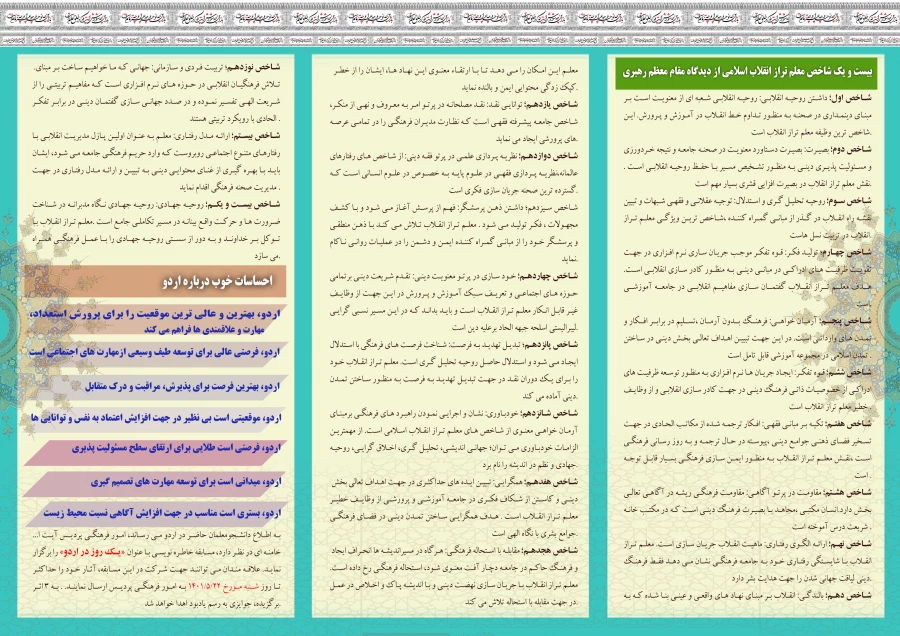 بیست و یک شاخص معلم تراز انقلاب اسلامی از دیدگاه مقام معظم رهبری
شاخص اول؛ داشتن روحیه انقلابی: روحیه انقلابی شعبه ای از معنویت است بر
مبنای دینمداری در صحنه به منظور تداوم خط انقلاب در آموزش و پرورش. این
شاخص ترین وظیفه معلم تراز انقلاب است.
شاخص دوم؛ بصیرت: بصیرت دستاورد معنویت در صحنه جامعه و نتیجه خردورزی
و مسئولیت پذیری دینی به منظور تشخیص مسیر با حفظ روحیه انقلابی است .
نقش معلم تراز انقلاب در بصیرت افزایی قشری بسیار مهم است.
شاخص سوم؛ روحیه تحلیل گری و استدلال: توجیه عقلانی و فقهی شبهات و تبین
نقشه راه انقلاب در گذر از مبانی گمراه کننده ،شاخص ترین ویژگی معلم تراز
انقلاب در تربیت نسل هاست.
شاخص چهارم؛ تولید فکر: قوه تفکر موجب جریان سازی نرم افزاری در جهت
تقویت ظرفیت های ادراکی در مبانی دینی به منظور کادر سازی انقلابی است.
هدف معلم تراز انقلاب گفتمان سازی مفاهیم انقلابی در جامعه آموزشی
است.
شاخص پنجم؛ آرمان خواهی: فرهنگ بدون آرمان ،تسلیم در برابر افکار و
تمدن های وارداتی است. در این جهت تبیین اهداف تعالی بخش دینی در ساختن
تمدن اسلامی در مجموعه آموزشی قابل تامل است.
شاخص ششم؛ قوه تفکر: ایجاد جریان ها نرم افزاری به منظور توسعه ظرفیت های
ادراکی از خصوصیات ذاتی فرهنگ دینی در جهت کادر سازی انقلابی و از وظایف
خطیر معلم تراز انقلاب است.
شاخص هفتم؛ تکیه بر مبانی فقهی: افکار ترجمه شده از مکاتب الحادی در جهت
تسخیر فضای ذهنی جوامع دینی ،پیوسته در حال ترجمه و به روز رسانی فرهنگی
است ،نقش معلم تراز انقلاب به منظور ایمن سازی فرهنگی بسیار قابل توجه
است.
شاخص هشتم؛ مقاومت در پرتو آگاهی: مقاومت فرهنگی ریشه در آگاهی تعالی
بخش دارد.انسان مکتبی ،مجاهد با بصیرت فرهنگ دینی است که در مکتب خانه
شریعت درس آموخته است .
شاخص نهم؛ ارائه الگوی رفتاری: ماهیت انقلاب جریان سازی است. معلم تراز
انقلاب با شایستگی رفتاری خود به جامعه فرهنگی نشان می دهد فقط فرهنگ
دینی لیاقت جهانی شدن را جهت هدایت بشر دارد.
شاخص دهم؛ بالندگی: انقلاب بر مبنای نهاد های واقعی و عینی بنا شده که به
معلم این امکان را می دهد تا با ارتقاء معنوی این نهاد ها، ایشان را از خطر
کپک زدگی محتوایی ایمن و بالنده نماید.
شاخص یازدهم؛ توانایی نقد: نقد مصلحانه در پرتو امر به معروف و نهی از منکر،
شاخص جامعه پیشرفته فقهی است که نظارت مدیران فرهنگی را در تمامی عرصه
های پرورشی ایجاد می نماید.
شاخص دوازدهم؛ نظریه پردازی علمی در پرتو فقه دینی: از شاخص های رفتارهای
عالمانه،نظریه پردازی فقهی در علوم پایه به خصوص در علوم انسانی است که
گسترده ترین صحنه جریان سازی فکری است.
شاخص سیزدهم؛ داشتن ذهن پرسشگر: فهم از پرسش آغاز می شود و با کشف
مجهولات ، فکر تولید می شود . معلم تراز انقلاب تلاش می کند با ذهن منطقی
و پرسشگر خود را از مبانی گمراه کننده ایمن و دشمن را در عملیات روانی ناکام
نماید.
شاخص چهاردهم؛ خود سازی در پرتو معنویت دینی: تقدم شریعت دینی بر تمامی
حوزه های اجتماعی و تعریف سبک آموزش و پرورش در این جهت از وظایف
غیر قابل انکار معلم تراز انقلاب است و باید بداند که در این مسیر نسبی گرایی
لیبرالیستی اسلحه جبهه الحاد برعلیه دین است.
شاخص پانزدهم؛ تبدیل تهدید به فرصت: شناخت فرصت های فرهنگی با استدلال
ایجاد می شود و استدلال حاصل روحیه تحلیل گری است. معلم تراز انقلاب خود
را برای یک دوران نقد در جهت تبدیل تهدید به فرصت به منظور ساختن تمدن
دینی آماده می کند.
شاخص شانزدهم؛ خودباوری: نشان و اجرایی نمودن راهبرد های فرهنگی برمبنای
آرمان خواهی معنوی از شاخص های معلم تراز انقلاب اسلامی است. از مهمترین
الزامات خودباوری می توان؛ جهانی اندیشی، تحلیل گری، اخلاق گرایی، روحیه
جهادی و نظم در اندیشه را نام برد.
شاخص هفدهم؛ همگرایی: تبیین ایده های حداکثری در جهت اهداف تعالی بخش
دینی و کاستن از شکاف فکری در جامعه آموزشی و پرورشی از وظایف خطیر
معلم تراز انقلاب است . هدف همگرایی ساختن تمدن دینی در فضای فرهنگی
جوامع بشری با نگاه الهی است.
شاخص هجدهم؛ مقابله با استحاله فرهنگی: هرگاه در مسیر اندیشه ها انحراف ایجاد
و فرهنگ حاکم در جامعه دچار آفت معنوی شود، استحاله فرهنگی رخ داده است.
معلم تراز انقلاب با جریان سازی نهضت دینی و با اندیشه پاک و اخلاص در عمل
در جهت مقابله با استحاله تلاش می کند.
شاخص نوزدهم؛ تربیت فردی و سازمانی: جهانی که ما خواهیم ساخت بر مبنای
تلاش فرهنگیان انقلابی در حوزه های نرم افزاری است که مفاهیم تربیتی را از
شریعت الهی تفسیر نموده و در صدد جهانی سازی گفتمان دینی در برابر تفکر
الحادی با رویکرد تربیتی هستند .
شاخص بیستم؛ ارائه مدل رفتاری: معلم به عنوان اولین پازل مدیریت انقلابی با
رفتارهای متنوع اجتماعی روبروست که وارد حریم فرهنگی جامعه می شود، ایشان
باید با بهره گیری از غنای محتوایی دینی به تبیین و ارائه مدل رفتاری در جهت
مدیریت صحنه فرهنگی اقدام نماید .
شاخص بیست و یکم؛ روحیه جهادی: روحیه جهادی نگاه مدبرانه در شناخت
ضرورت ها و حرکت واقع بینانه در مسیر تکاملی جامع است .معلم تراز انقلاب با
توکل بر خداوند و به دور از سستی روحیه جهادی را با عمل فرهنگی همراه
می سازد.
احساسات خوب درباره اردو
اردو، بهترین و عالی ترین موقعیت را برای پرورش استعداد،
مهارت و علاقمندی ها فراهم می کند
اردو، فرصتی عالی برای توسعه طیف وسیعی ازمهارت های اجتماعی است
اردو، بهترین فرصت برای پذیرش، مراقبت و درک متقابل
اردو، موقعیتی است بی نظیر در جهت افزایش اعتماد به نفس و توانایی ها
اردو، فرصتی است طلایی برای ارتقای سطح مسئولیت پذیری
اردو، میدانی است برای توسعه مهارت های تصمیم گیری
اردو، بستری است مناسب در جهت افزایش آگاهی نسبت محیط زیست
به اطلاع دانشجومعلمان حاضر در اردو می رساند، امور فرهنگی پردیس آیت ا...
خامنه ای در نظر دارد، مسابقه خاطره نویسی با عنوان «یک روز در اردو» را برگزار
نماید. علاقه مندان می توانند جهت شرکت در این مسابقه، آثار خود را حداکثر
تا روز شنبه مورخ ۱۴۰۱/۵/۲۲ به امور فرهنگی پردیس ارسال نمایند. . به ۳ اثر
برگزیده، جوایزی به رسم یادبود اهدا خواهد شد.